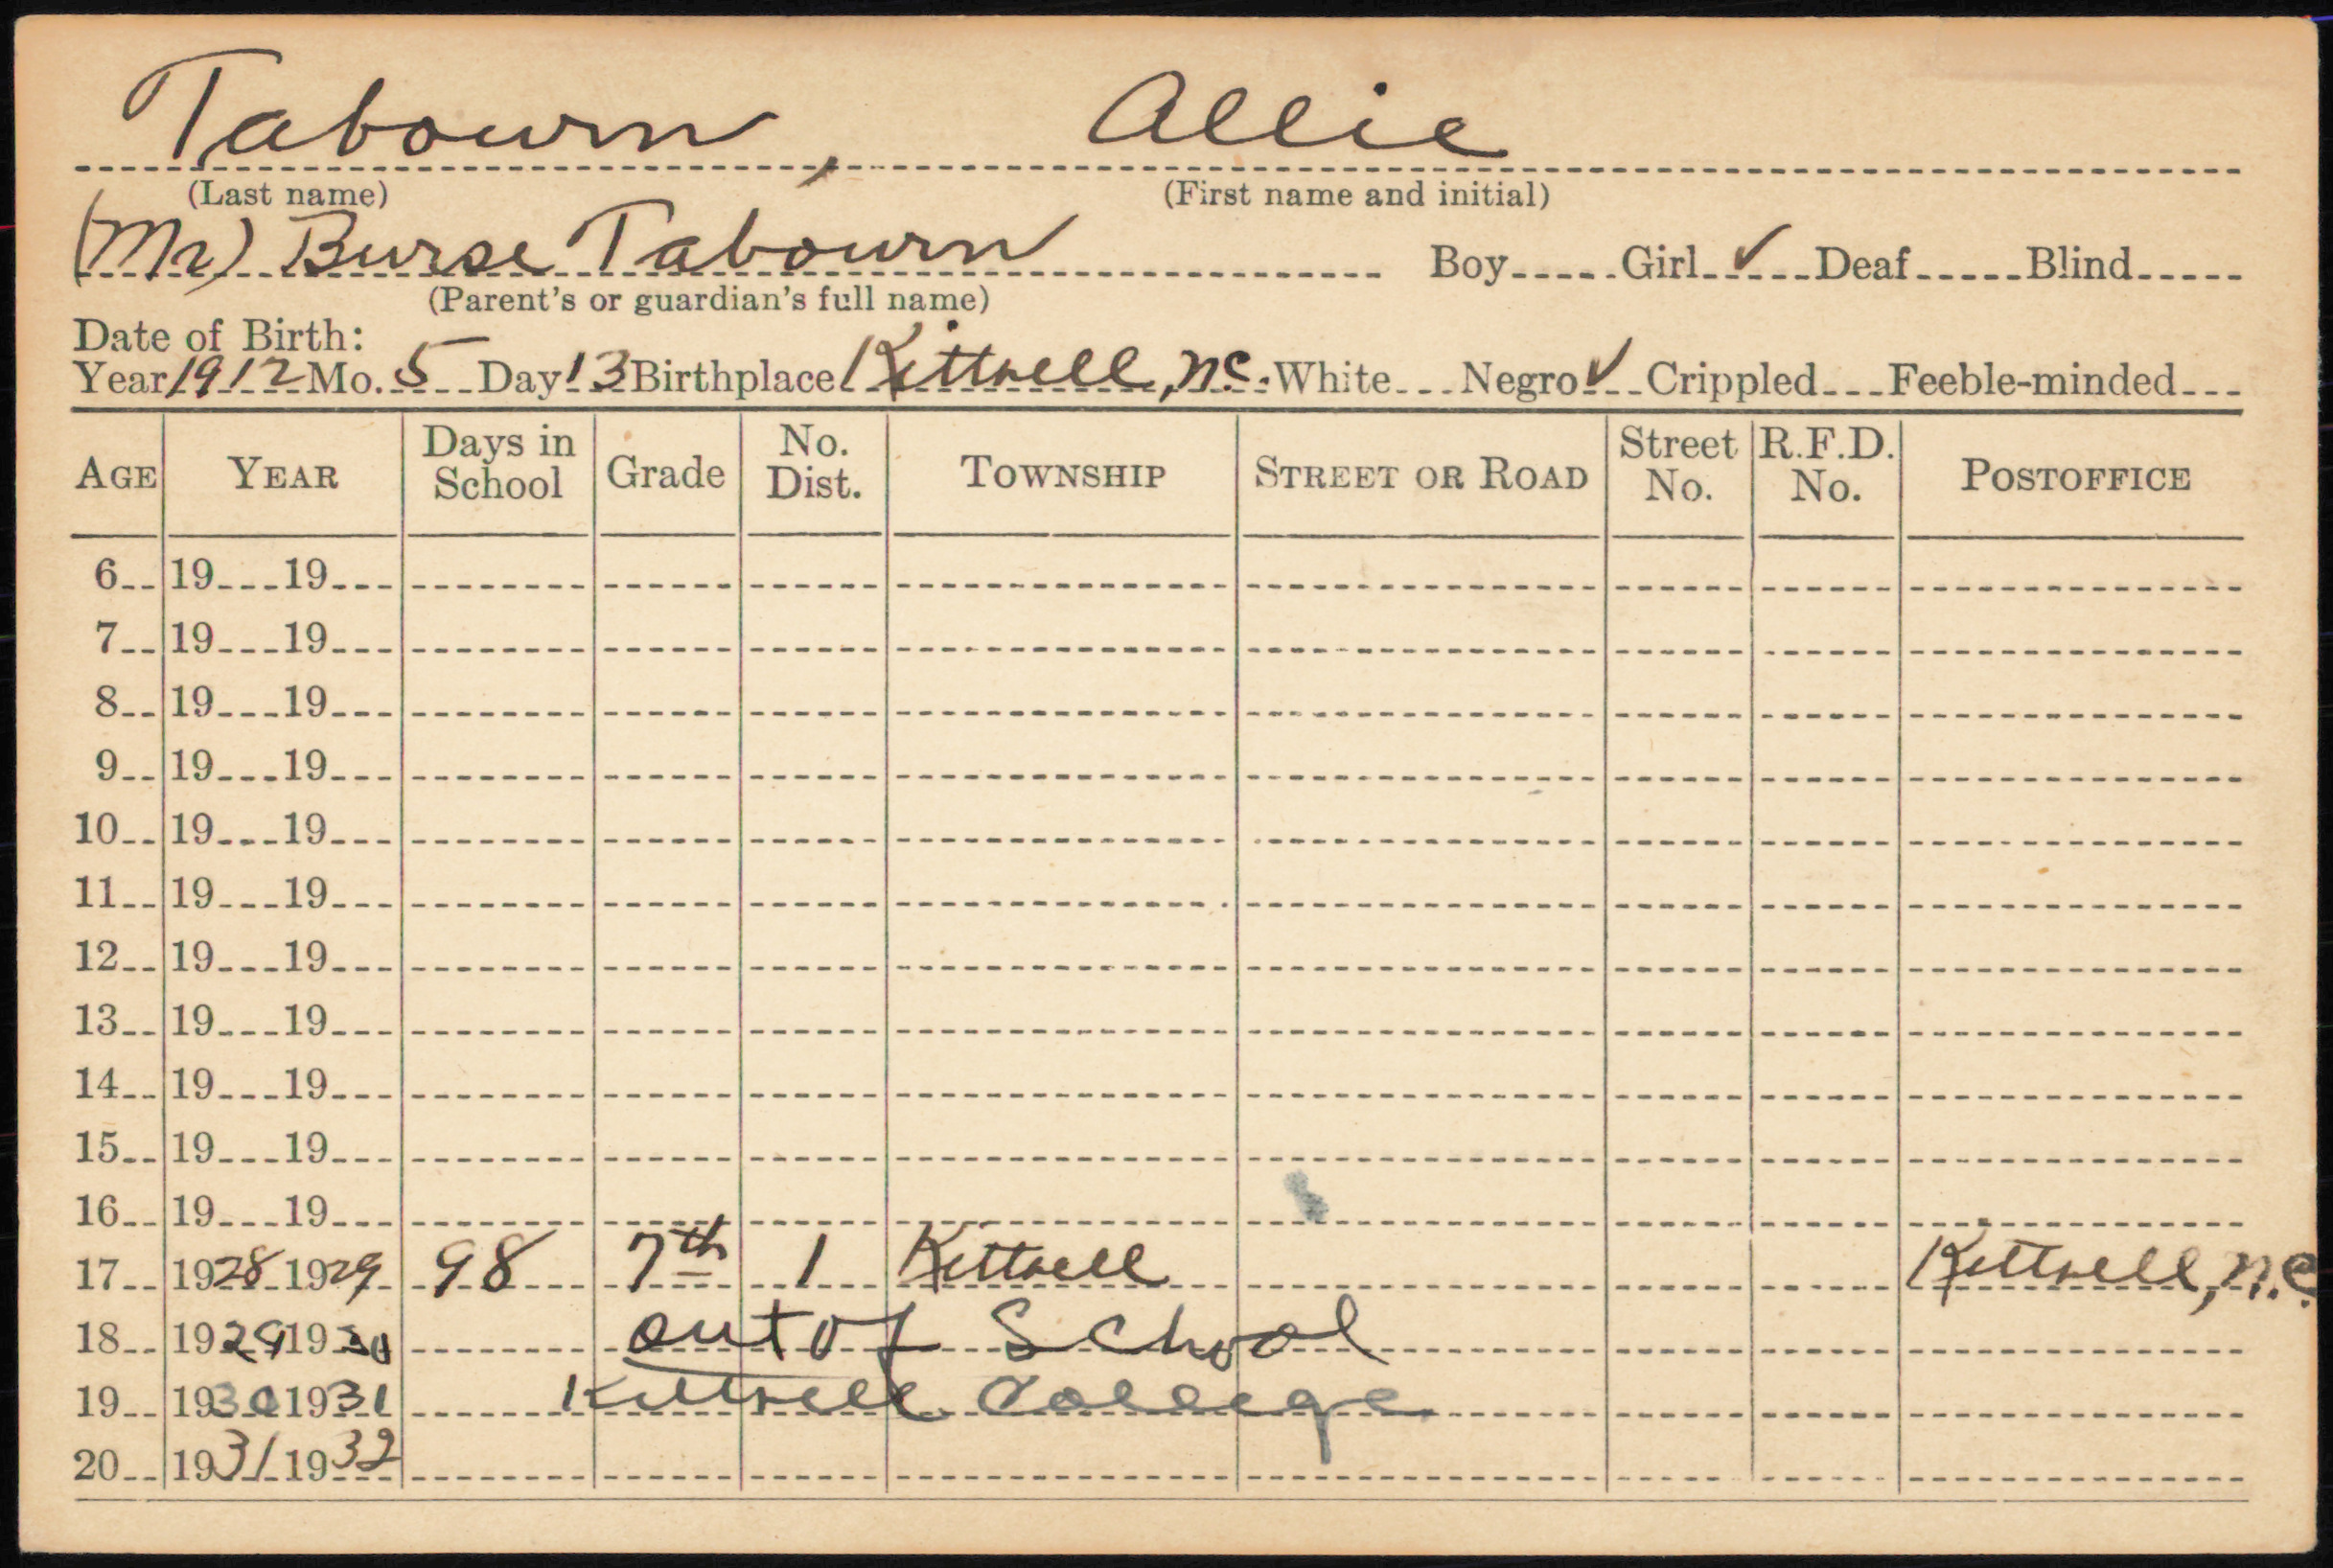 Tabourn, Allie
(Last name) (First name and initial)
(Mr) Burse Tabourn Boy Girl ✓ Deaf Blind
(Parent's or guardian's full name)
Date of Birth:
Year 1912 Mo. 5 Day 13 Birthplace Kittrell, N.C. White Negro ✓ Crippled Feeble-minded
AGE YEAR Days in School Grade No. Dist. TOWNSHIP STREET OR ROAD Street No. R.F.D. No. POSTOFFICE
6 19 19
7 19 19
8 19 19
9 19 19
10 19 19
11 19 19
12 19 19
13 19 19
14 19 19
15 19 19
16 19 19
17 1928 1929 98 7th 1 Kittrell Kittrell, N.C.
18 1929 1930 out of School
19 1930 1931 Kittrell College
20 1931 1932